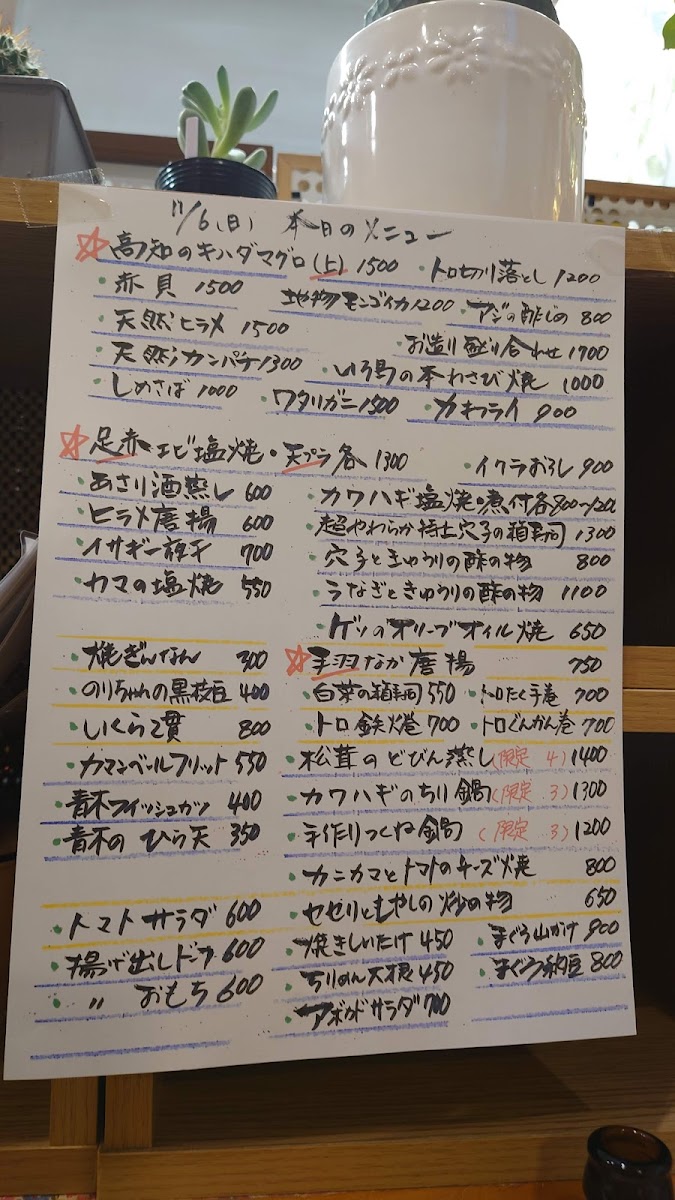 11/6(日) 本日のメニュー
☆高知のキハダマグロ(上) 1500 ・トロ切り落とし 1200
・赤貝 1500 地物モンゴイカ1200 ・アジの酢じめ 800
・天然ヒラメ 1500 お造り盛り合わせ 1700
・天然カンパチ1300 ・いろ鳥の本わさび焼 1000
・しめさば 1000 ・ワタリガニ1500 ・カキフライ 900
☆足赤エビ塩焼・天プラ各 1300 ・イクラおろし 900
・あさり酒蒸し 600 ・カワハギ塩焼・煮付各800〜1200
・ヒラメ唐揚 600 ・超やわらか特上穴子の箱寿司 1300
・イサギ一夜干 700 ・穴子ときゅうりの酢の物 800
・カマの塩焼 550 ・うなぎときゅうりの酢の物 1100
・ゲソのオリーブオイル焼 650
・焼ぎんなん 300 ☆手羽なか唐揚 750
・のりちゃんの黒枝豆 400 ・白芽の箱寿司 550 ・トロたく手巻 700
・いくら2貫 800 ・トロ鉄火巻 700 ・トロぐんかん巻 700
・カマンベールフリット 550 ・松茸のどびん蒸し(限定 4) 1400
・青木フィッシュカツ 400 ・カワハギのちり鍋(限定 3) 1300
・青木の ひら天 350 ・手作りつくね鍋 (限定 3) 1200
・カニカマとトマトのチーズ焼 800
・トマトサラダ 600 ・セセリともやしの炒め物 650
・揚げ出しドーフ 600 ・焼きしいたけ 450 ・まぐろ山かけ 900
・ 〃 おもち 600 ・ちりめん大根 450 ・まぐろ納豆 800
・アボカドサラダ 700